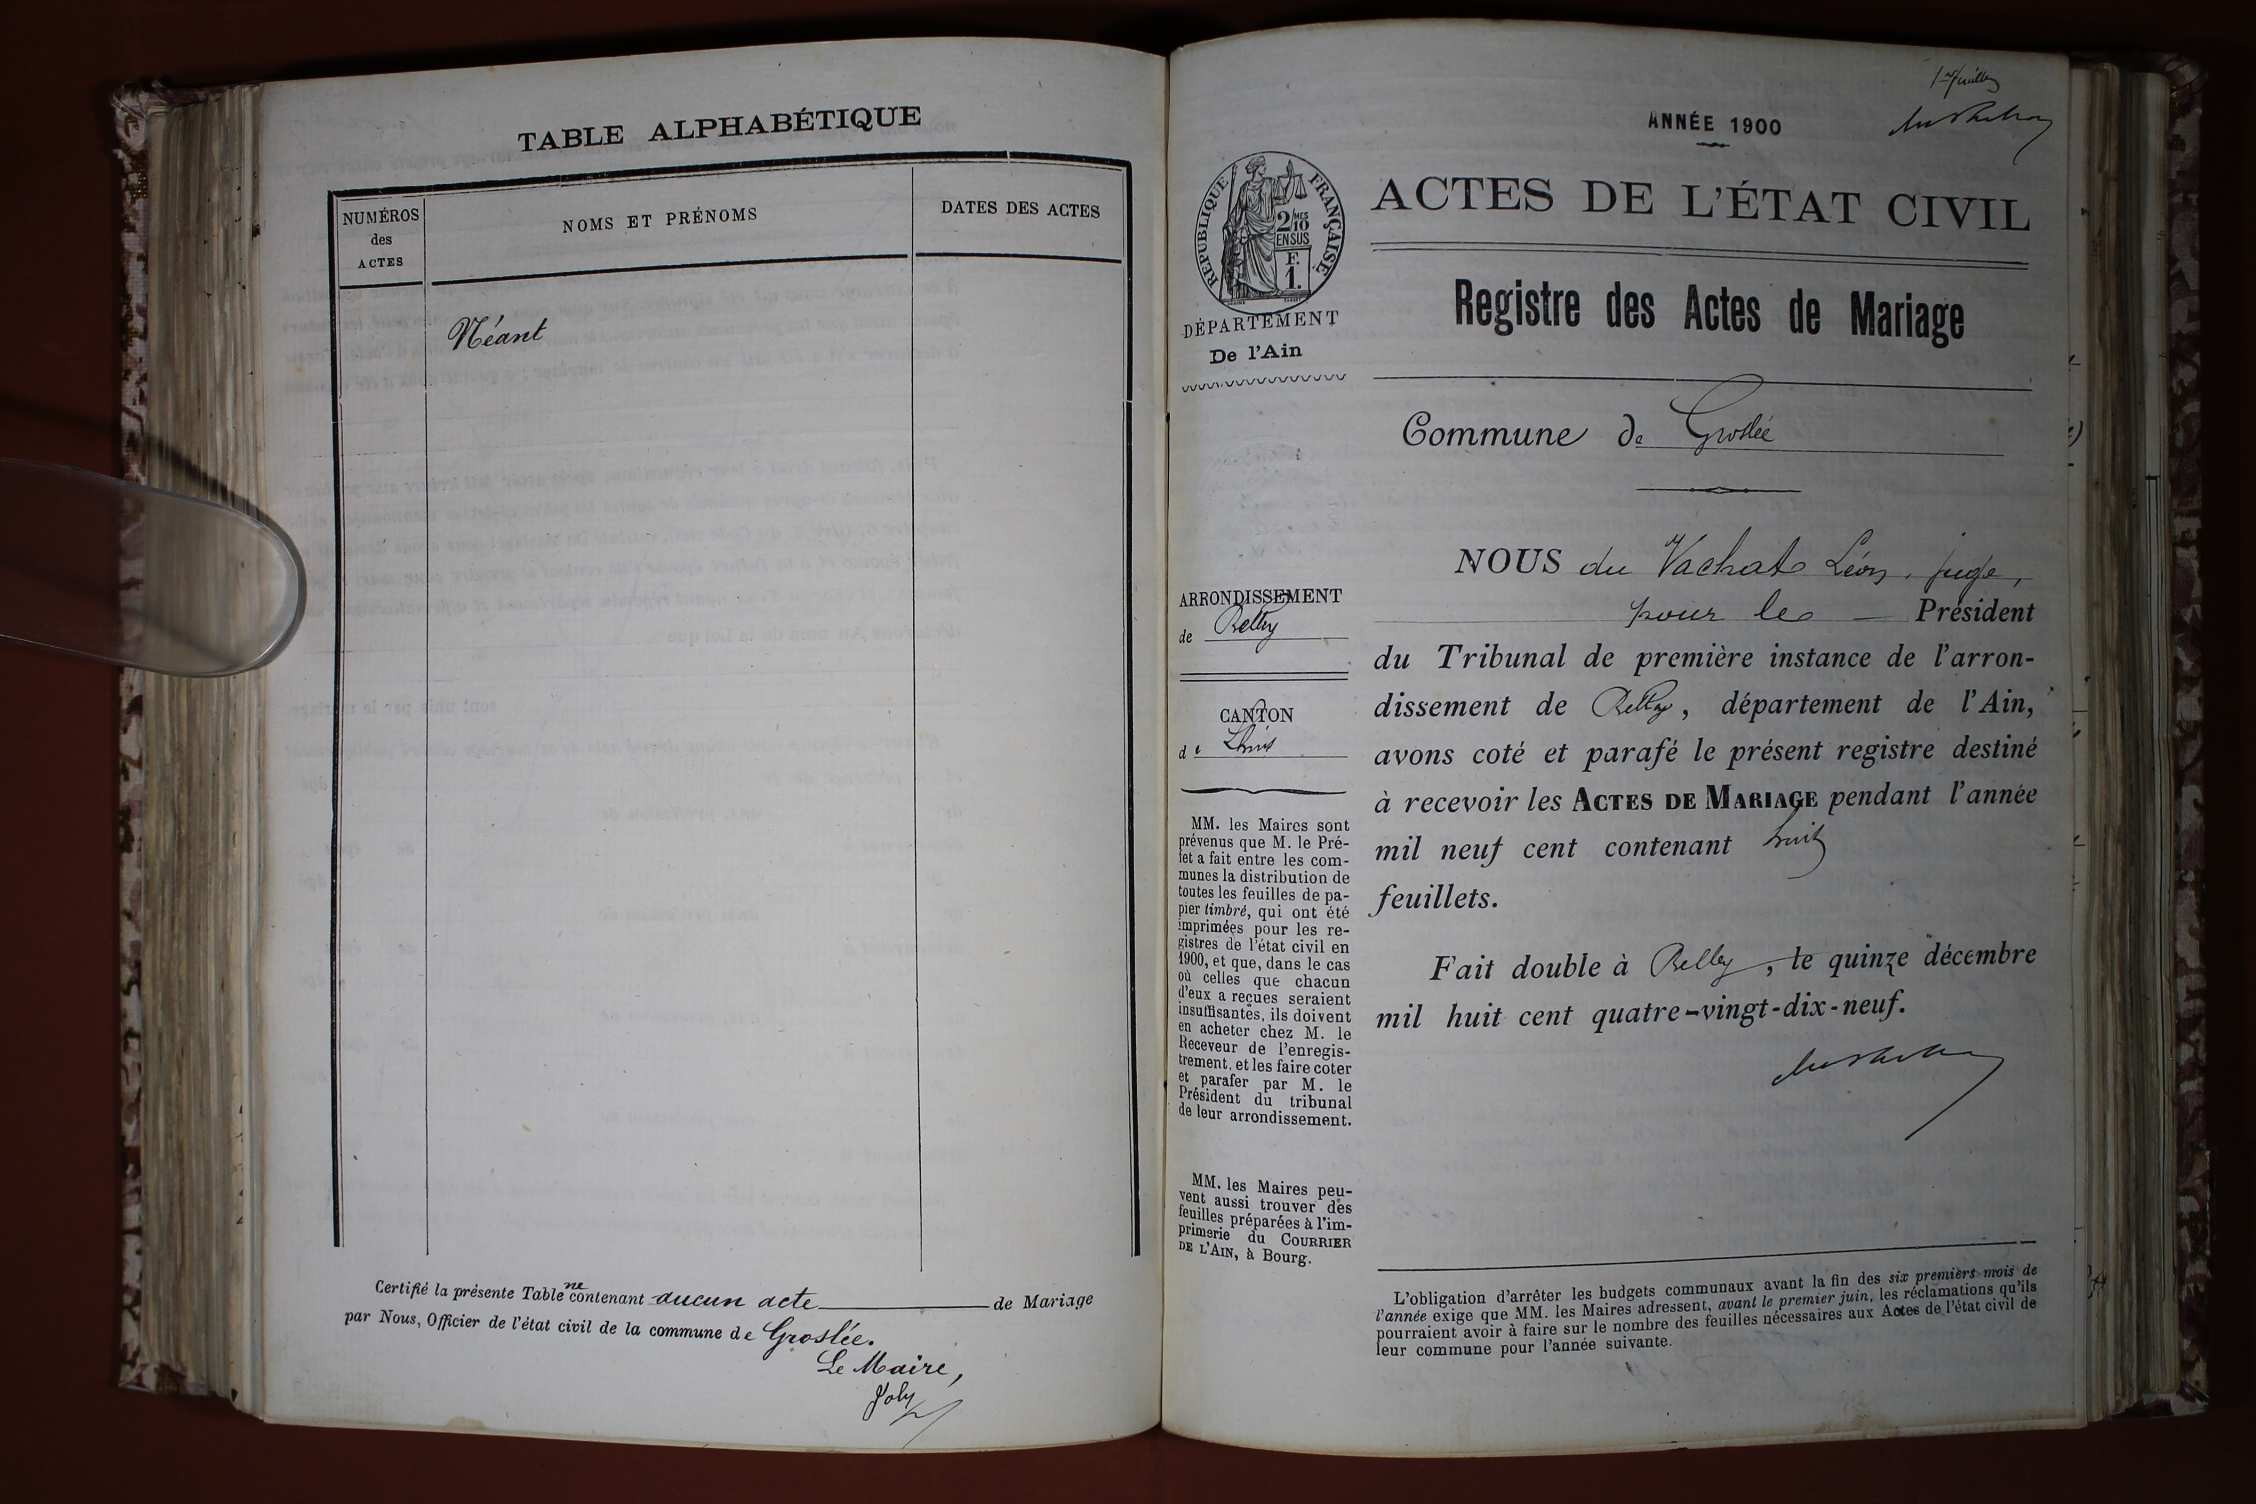 TABLE ALPHABÉTIQUE
NUMÉROS
des
ACTES
NOMS ET PRÉNOMS
DATES DES ACTES
Néant
Certifié la présente Table ne contenant aucun acte de Mariage
par Nous, Officier de l'état civil de la commune de Groslée.
Le Maire,
Joly
1er feuillet
ANNÉE 1900
RÉPUBLIQUE FRANÇAISE
2/10 MES
EN SUS
F.
1.
DÉPARTEMENT
De l'Ain
ACTES DE L'ÉTAT CIVIL
Registre des Actes de Mariage
Commune de Groslée
ARRONDISSEMENT
de Belley
CANTON
de Lhuis
MM. les Maires sont
prévenus que M. le Pré-
fet a fait entre les com-
munes la distribution de
toutes les feuilles de pa-
pier timbré, qui ont été
imprimées pour les re-
gistres de l'état civil en
1900, et que, dans le cas
où celles que chacun
d'eux a reçues seraient
insuffisantes, ils doivent
en acheter chez M. le
Receveur de l'enregis-
trement, et les faire coter
et parafer par M. le
Président du tribunal
de leur arrondissement.
MM. les Maires peu-
vent aussi trouver des
feuilles préparées à l'im-
primerie du COURRIER
DE L'AIN, à Bourg.
NOUS du Vachat Léon, juge,
pour le — Président
du Tribunal de première instance de l'arron-
dissement de Belley, département de l'Ain,
avons coté et parafé le présent registre destiné
à recevoir les ACTES DE MARIAGE pendant l'année
mil neuf cent contenant huit
feuillets.
Fait double à Belley, le quinze décembre
mil huit cent quatre-vingt-dix-neuf.
L'obligation d'arrêter les budgets communaux avant la fin des six premiers mois de
l'année exige que MM. les Maires adressent, avant le premier juin, les réclamations qu'ils
pourraient avoir à faire sur le nombre des feuilles nécessaires aux Actes de l'état civil de
leur commune pour l'année suivante.